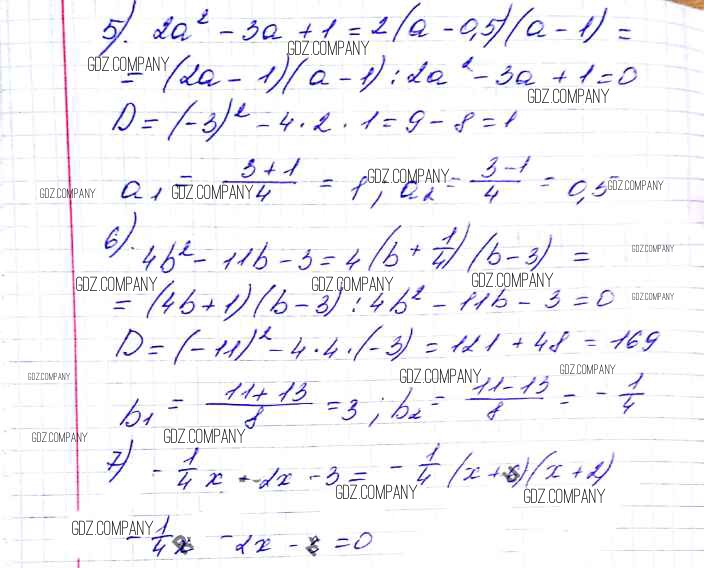 5). 2a² - 3a + 1 = 2(a - 0,5)(a - 1) =
GDZ.COMPANY
GDZ.COMPANY
= (2a - 1)(a - 1) : 2a² - 3a + 1 = 0
GDZ.COMPANY
D = (-3)² - 4 · 2 · 1 = 9 - 8 = 1
a₁ = (3+1)/4 = 1; a₂ = (3-1)/4 = 0,5
GDZ.COMPANY GDZ.COMPANY GDZ.COMPANY GDZ.COMPANY
6). 4b² - 11b - 3 = 4(b + 1/4)(b - 3) =
GDZ.COMPANY
GDZ.COMPANY GDZ.COMPANY GDZ.COMPANY
= (4b + 1)(b - 3) : 4b² - 11b - 3 = 0
GDZ.COMPANY
D = (-11)² - 4 · 4 · (-3) = 121 + 48 = 169
GDZ.COMPANY GDZ.COMPANY GDZ.COMPANY
b₁ = (11+13)/8 = 3; b₂ = (11-13)/8 = -1/4
GDZ.COMPANY GDZ.COMPANY
7) -1/4 x - 2x - 3 = -1/4 (x + )(x + 2)
GDZ.COMPANY GDZ.COMPANY
GDZ.COMPANY
-1/4 - 2x - = 0